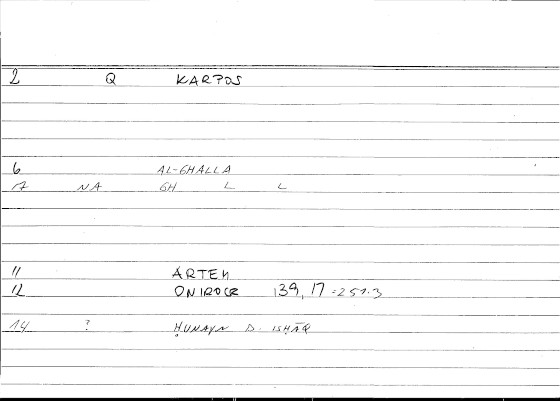 2 Q KARPOS
6 AL-GHALLA
7 NA GH L L
11 ARTEM
12 ONIROCR 139, 17 = 251.3
14 ? ḤUNAYN B. ISḤĀQ